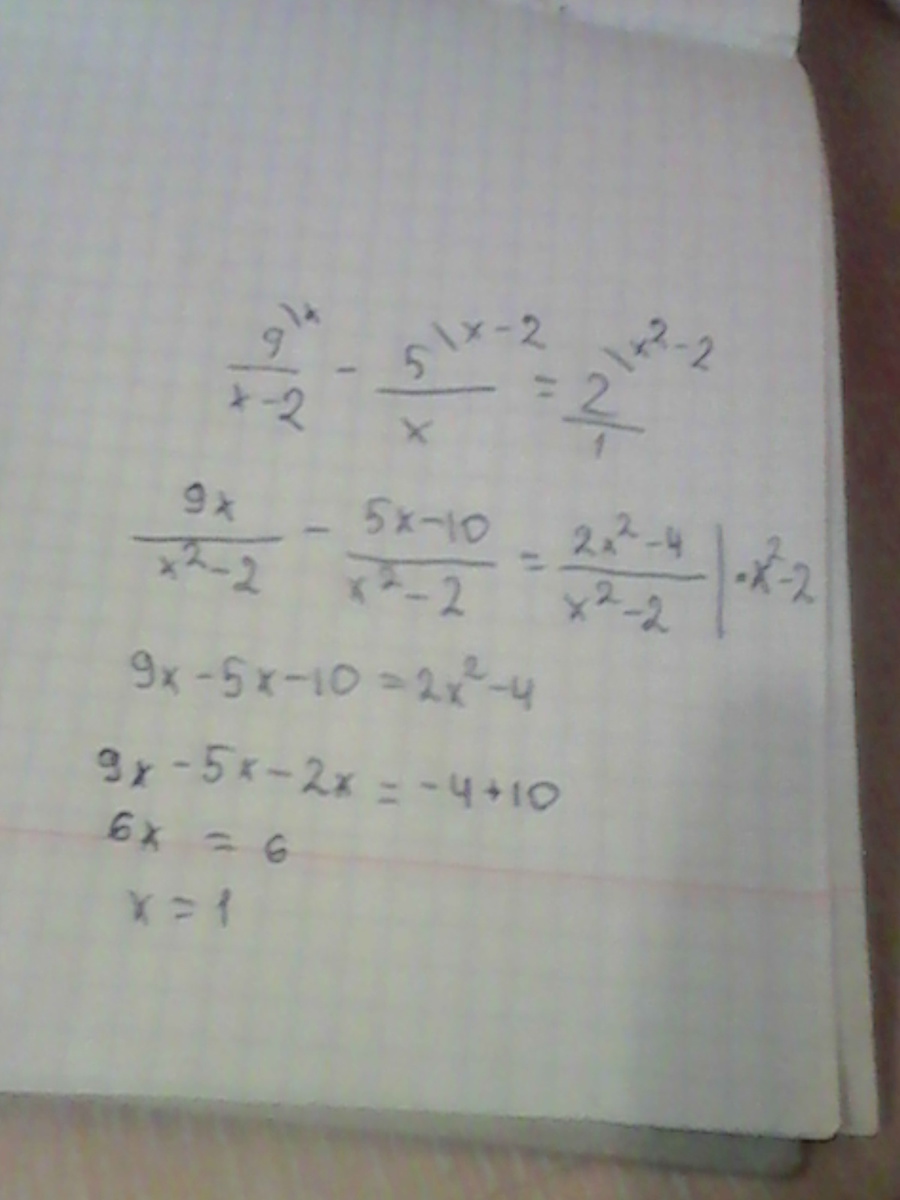 9\x/(x-2) - 5\x-2/x = 2\x²-2/1
9x/(x²-2) - (5x-10)/(x²-2) = (2x²-4)/(x²-2) | ·x²-2
9x-5x-10=2x²-4
9x-5x-2x=-4+10
6x = 6
x=1